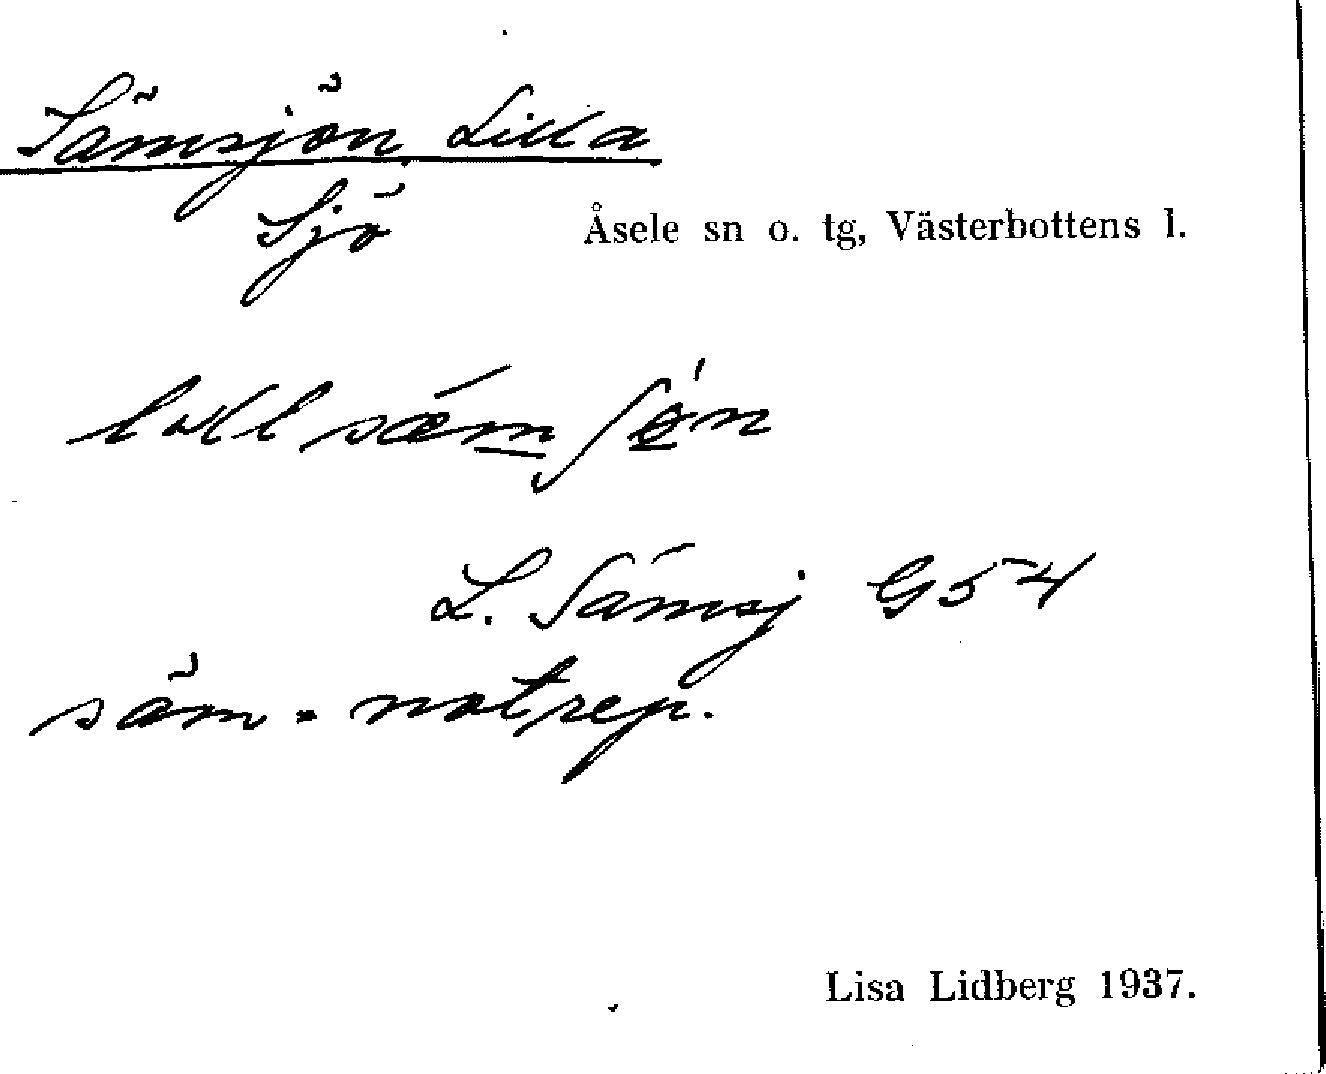 Sämsjön, Lilla
Sjö
Åsele sn o. tg, Västerbottens l.
L. Sämsj G54
säm = notrep.
Lisa Lidberg 1937.